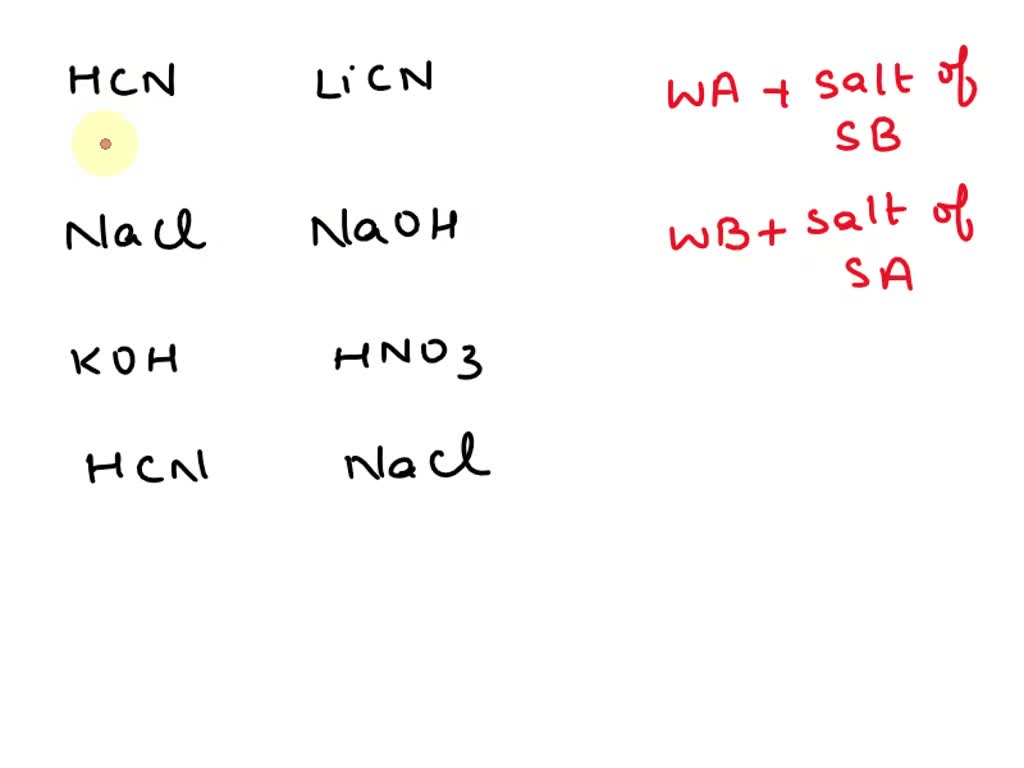 HCN LiCN
WA + salt of
SB
NaCl NaOH
WB + salt of
SA
KOH HNO3
HCN NaCl